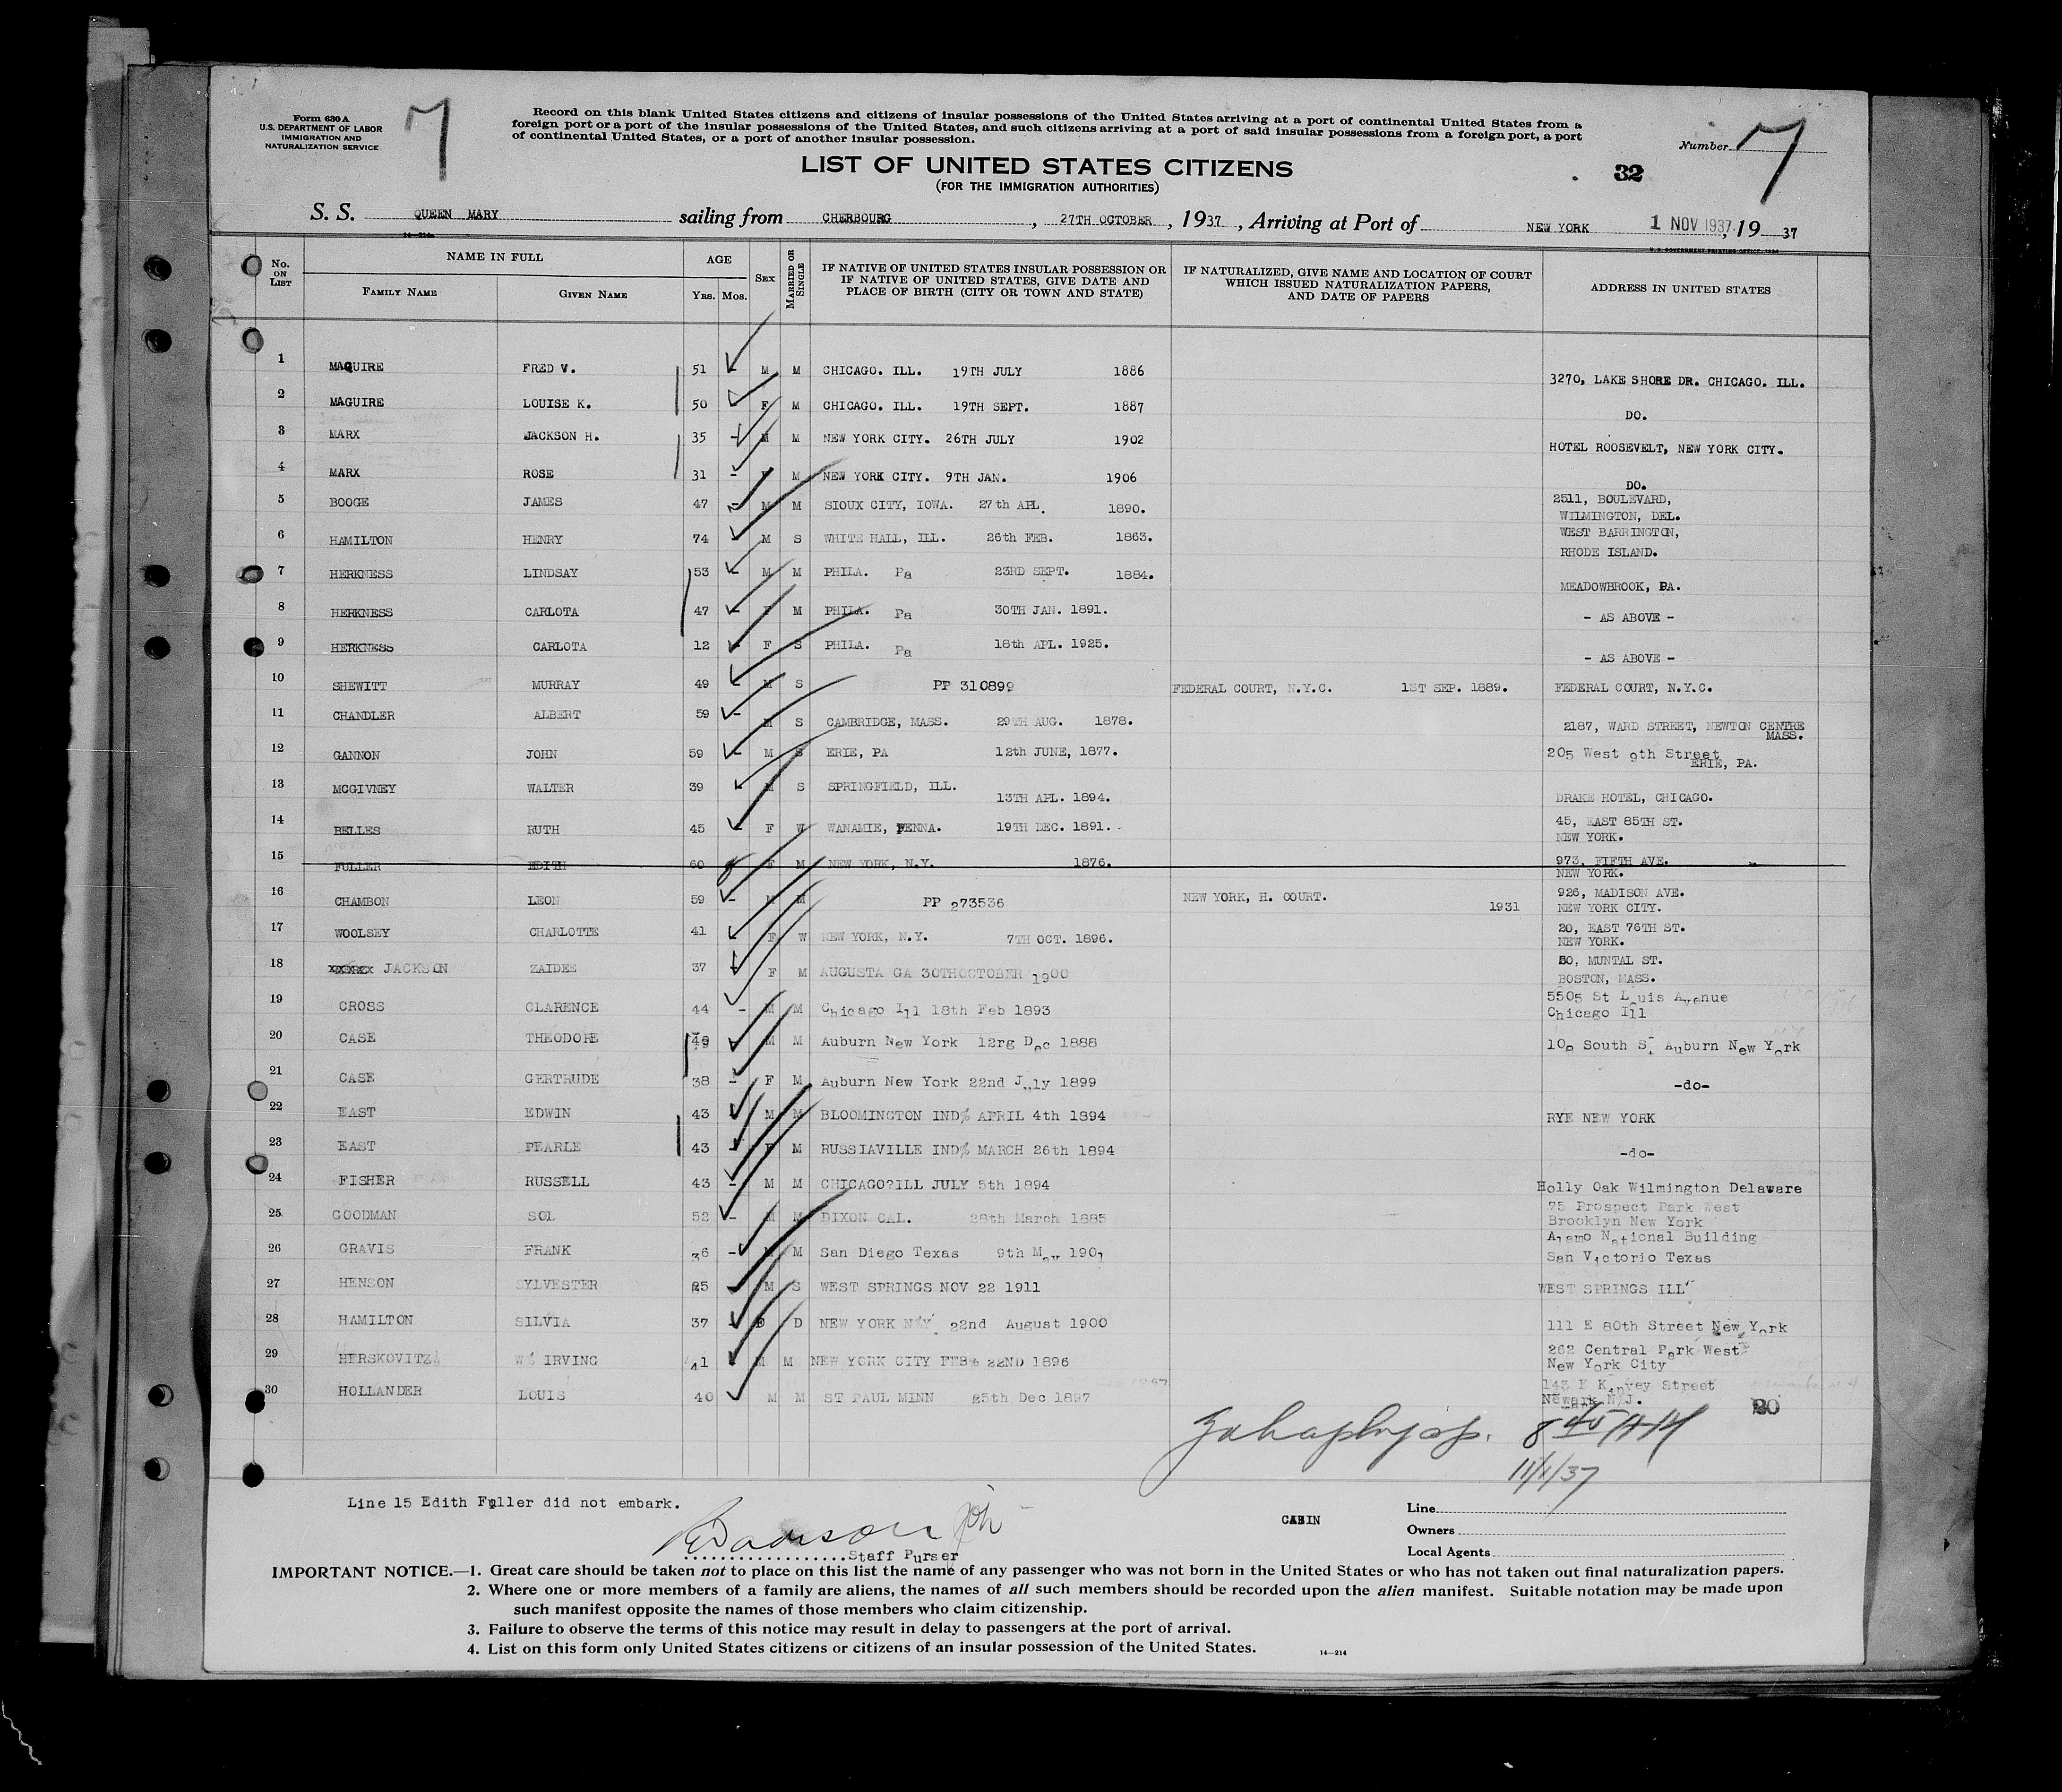 Form 630 A
U.S. DEPARTMENT OF LABOR
IMMIGRATION AND
NATURALIZATION SERVICE
7
Record on this blank United States citizens and citizens of insular possessions of the United States arriving at a port of continental United States from a
foreign port or a port of the insular possessions of the United States, and such citizens arriving at a port of said insular possessions from a foreign port, a port
of continental United States, or a port of another insular possession.
Number 7
LIST OF UNITED STATES CITIZENS
32
(FOR THE IMMIGRATION AUTHORITIES)
S. S. QUEEN MARY sailing from CHERBOURG, 27TH OCTOBER, 1937, Arriving at Port of NEW YORK 1 NOV 1937, 19 37
14—214a
U.S. GOVERNMENT PRINTING OFFICE: 1934
No. ON LIST
NAME IN FULL
FAMILY NAME GIVEN NAME
AGE
YRS. MOS.
SEX
MARRIED OR SINGLE
IF NATIVE OF UNITED STATES INSULAR POSSESSION OR
IF NATIVE OF UNITED STATES, GIVE DATE AND
PLACE OF BIRTH (CITY OR TOWN AND STATE)
IF NATURALIZED, GIVE NAME AND LOCATION OF COURT
WHICH ISSUED NATURALIZATION PAPERS,
AND DATE OF PAPERS
ADDRESS IN UNITED STATES
1 MAGUIRE FRED V. 51 - M M CHICAGO. ILL. 19TH JULY 1886 3270, LAKE SHORE DR. CHICAGO. ILL.
2 MAGUIRE LOUISE K. 50 - F M CHICAGO. ILL. 19TH SEPT. 1887 DO.
3 MARX JACKSON H. 35 - M M NEW YORK CITY. 26TH JULY 1902 HOTEL ROOSEVELT, NEW YORK CITY.
4 MARX ROSE 31 - F M NEW YORK CITY. 9TH JAN. 1906 DO.
5 BOOGE JAMES 47 - M M SIOUX CITY, IOWA. 27th APL. 1890. 2511, BOULEVARD,
WILMINGTON, DEL.
6 HAMILTON HENRY 74 - M S WHITE HALL, ILL. 26th FEB. 1863. WEST BARRINGTON,
RHODE ISLAND.
7 HERKNESS LINDSAY 53 - M M PHILA. Pa 23RD SEPT. 1884. MEADOWBROOK, PA.
8 HERKNESS CARLOTA 47 - F M PHILA. Pa 30TH JAN. 1891. - AS ABOVE -
9 HERKNESS CARLOTA 12 - F S PHILA. Pa 18th APL. 1925. - AS ABOVE -
10 SHEWITT MURRAY 49 - M S PP 310899 FEDERAL COURT, N.Y.C. 1ST SEP. 1889. FEDERAL COURT, N.Y.C.
11 CHANDLER ALBERT 59 - M S CAMBRIDGE, MASS. 29TH AUG. 1878. 2187, WARD STREET, NEWTON CENTRE
MASS.
12 GANNON JOHN 59 - M S ERIE, PA 12th JUNE, 1877. 205 West 9th Street
ERIE, PA.
13 MCGIVNEY WALTER 39 M S SPRINGFIELD, ILL.
13TH APL. 1894. DRAKE HOTEL, CHICAGO.
14 BELLES RUTH 45 - F W WANAMIE, PENNA. 19TH DEC. 1891. 45, EAST 85TH ST.
NEW YORK.
15 FULLER EDITH 60 F M NEW YORK, N.Y. 1876. 973, FIFTH AVE.
NEW YORK.
16 CHAMBON LEON 59 - M M PP 273536 NEW YORK, H. COURT. 1931 926, MADISON AVE.
NEW YORK CITY.
17 WOOLSEY CHARLOTTE 41 F W NEW YORK, N.Y. 7TH OCT. 1896. 20, EAST 76TH ST.
NEW YORK.
18 xxxxxx JACKSON ZAIDEE 37 - F M AUGUSTA GA 30THOCTOBER 1900 80, MUNTAL ST.
BOSTON, MASS.
19 CROSS CLARENCE 44 - M M Chicago Ill 18th Feb 1893 5505 St Louis Avenue
Chicago Ill
20 CASE THEODORE 49 M M Auburn New York 12rg Dec 1888 108 South St. Auburn New York
21 CASE GERTRUDE 38 - F M Auburn New York 22nd July 1899 -do-
22 EAST EDWIN 43 - M M BLOOMINGTON IND% APRIL 4th 1894 RYE NEW YORK
23 EAST PEARLE 43 - F M RUSSIAVILLE IND% MARCH 26th 1894 -do-
24 FISHER RUSSELL 43 - M M CHICAGO?ILL JULY 5th 1894 Holly Oak Wilmington Delaware
25 GOODMAN SOL 52 - M M DIXON CAL. 28th March 1885 75 Prospect Park West
Brooklyn New York
26 GRAVIS FRANK 36 - M M San Diego Texas 9th May 1901 Alamo National Building
San Victorio Texas
27 HENSON SYLVESTER 25 M S WEST SPRINGS NOV 22 1911 WEST SPRINGS ILL
28 HAMILTON SILVIA 37 - F D NEW YORK N%Y 22nd August 1900 111 E 80th Street New York
29 HERSKOVITZ W% IRVING 41 M M NEW YORK CITY FEB% 22ND 1896 262 Central Park West
New York City
30 HOLLANDER LOUIS 40 M M ST PAUL MINN 25th Dec 1897 143 E Kinney Street
Newark N/J.
20
8 45
11/1/37
Line 15 Edith Fuller did not embark.
Staff Purser
CABIN
Line
Owners
Local Agents
IMPORTANT NOTICE.—1. Great care should be taken not to place on this list the name of any passenger who was not born in the United States or who has not taken out final naturalization papers.
2. Where one or more members of a family are aliens, the names of all such members should be recorded upon the alien manifest. Suitable notation may be made upon
such manifest opposite the names of those members who claim citizenship.
3. Failure to observe the terms of this notice may result in delay to passengers at the port of arrival.
4. List on this form only United States citizens or citizens of an insular possession of the United States.
14—214